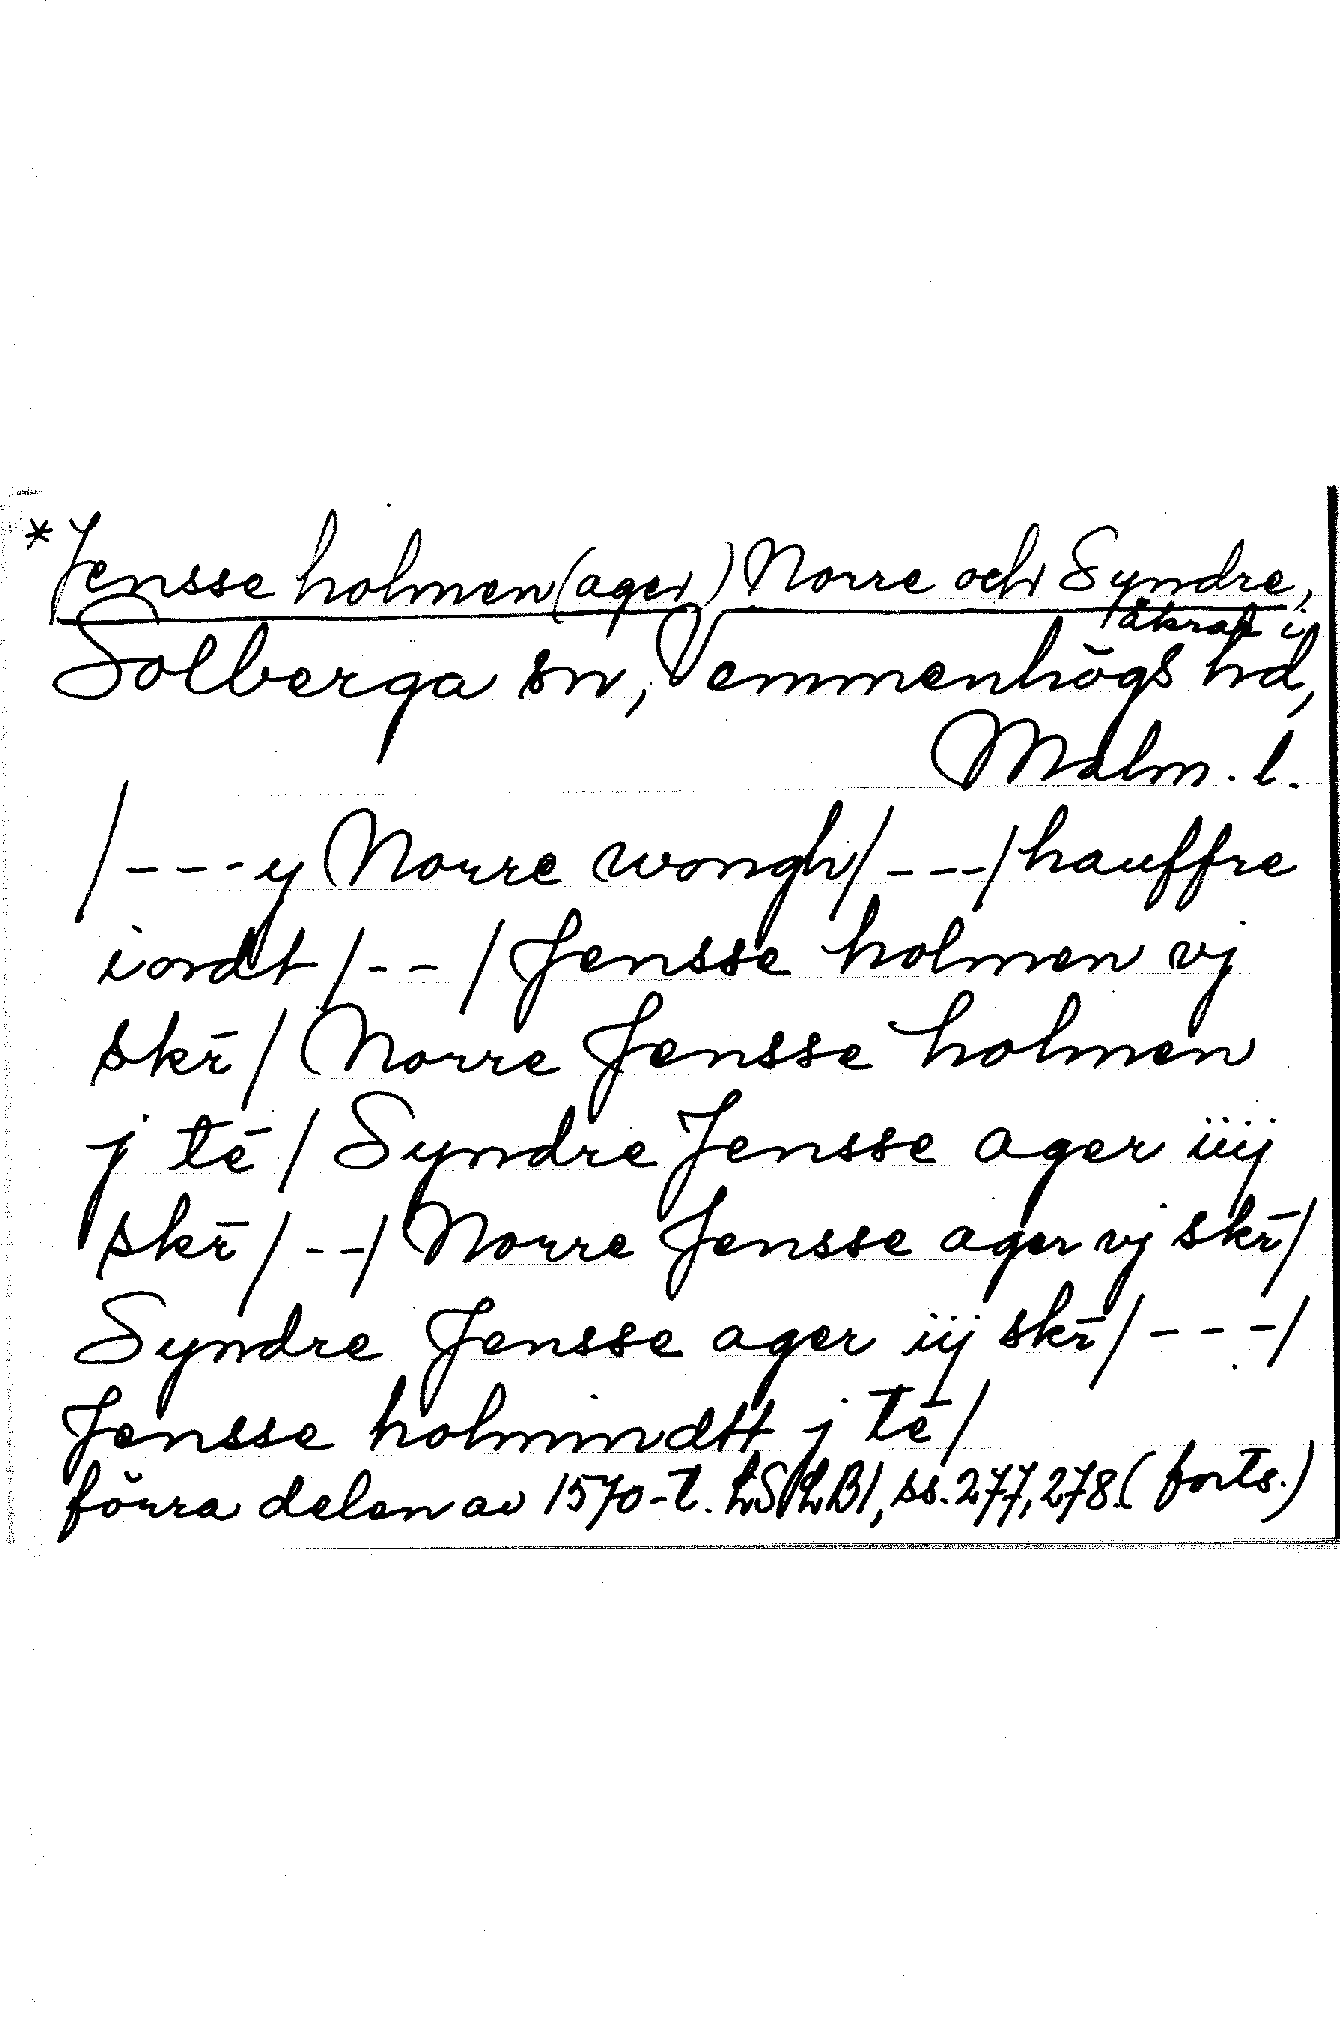 *Jensse holmen (ager) Norre och Syndre,
åkrar i
Solberga sn, Vemmenhögs hd,
Malm. l.
/---y Norre wongh/---/hauffre
iordt/--/Jensse holmen vj
skr̄/Norre Jensse holmen
j tē/Syndre Jensse ager iiij
skr̄/--/Norre Jensse ager vj skr̄/
Syndre Jensse ager iij skr̄/---/
Jensse holmindtt j tē/
förra delen av 1570-t. LSPLB1, ss. 277, 278 (forts.)